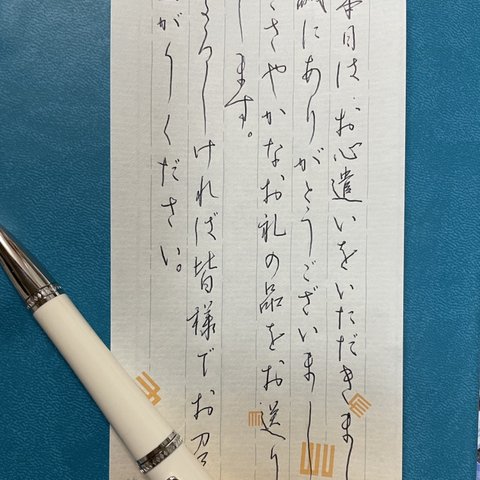 本日は、お心遣いをいただきまし
誠にありがとうございまし
ささやかなお礼の品をお送り
します。
よろしければ皆様でお召
がりください。